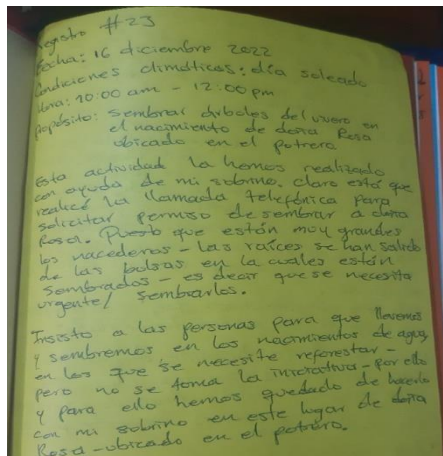 Registro #23
Fecha: 16 diciembre 2022
Condiciones climáticas: día soleado
Hora: 10:00 am - 12:00 pm
Propósito: sembrar árboles del vivero en
el nacimiento de doña Rosa
ubicado en el potrero.
Esta actividad la hemos realizado
con ayuda de mi sobrino. Claro está que
realicé la llamada telefónica para
solicitar permiso de sembrar a doña
Rosa. Puesto que están muy grandes
los nacederos - las raíces se han salido
de las bolsas en la cuales están
sembrados - es decir que se necesita
urgente/ sembrarlos.
Insisto a las personas para que llevemos
y sembremos en los nacimientos de agua,
en los que se necesite reforestar -
pero no se toma la iniciativa - por ello
y para ello hemos quedado de hacerlo
con mi sobrino en este lugar de doña
Rosa - ubicado en el potrero.